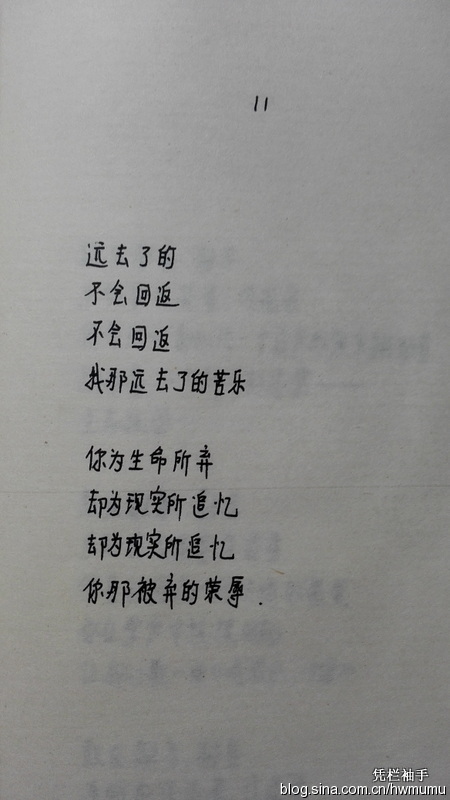 11
远去了的
不会回返
不会回返
我那远去了的苦乐
你为生命所弃
却为现实所追忆
却为现实所追忆
你那被弃的荣辱.
凭栏袖手
blog.sina.com.cn/hwmumu